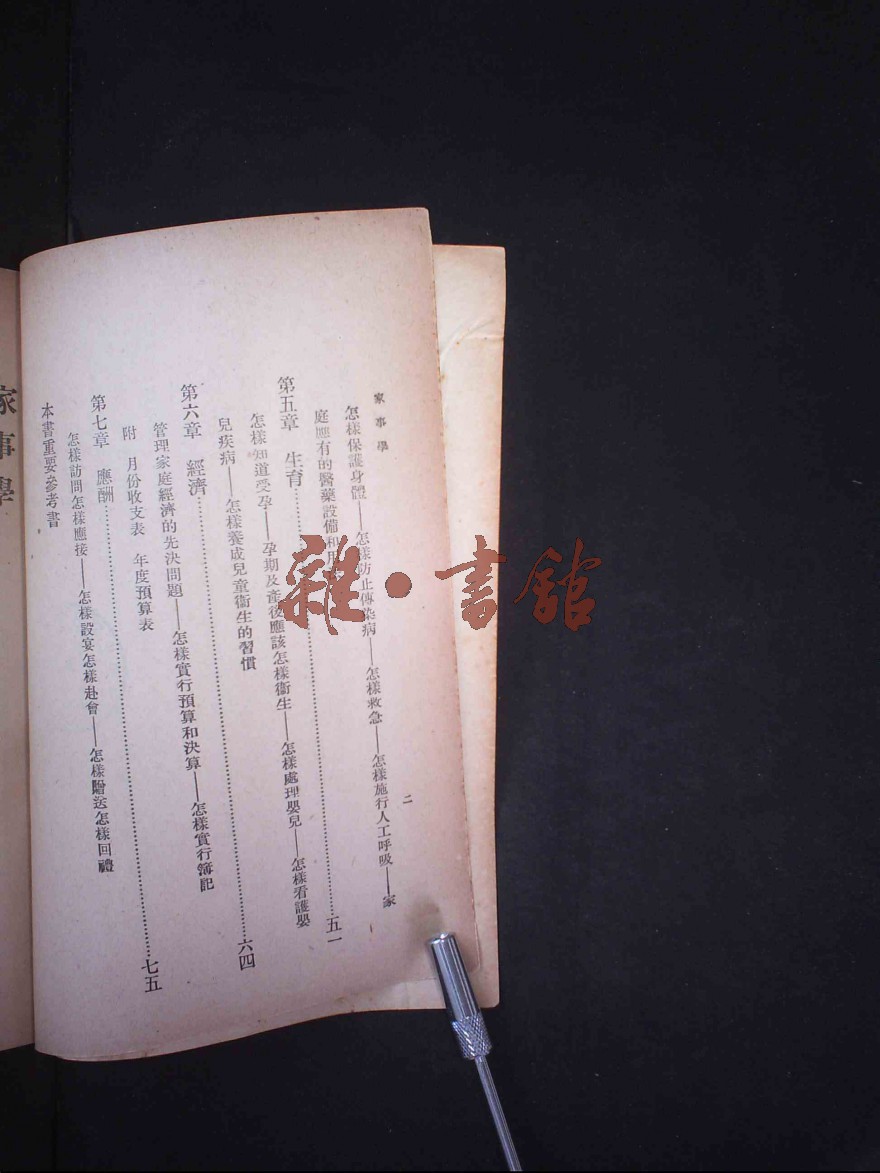 家事學
二
怎樣保護身體——怎樣防止傳染病——怎樣救急——怎樣施行人工呼吸——家
庭應有的醫藥設備和用
第五章 生育……五一
怎樣知道受孕——孕期及產後應該怎樣衞生——怎樣處理嬰兒——怎樣看護嬰
兒疾病——怎樣養成兒童衞生的習慣
第六章 經濟……六四
管理家庭經濟的先決問題——怎樣實行預算和決算——怎樣實行簿記
附 月份收支表 年度預算表
第七章 應酬……七五
怎樣訪問怎樣應接——怎樣設宴怎樣赴會——怎樣贈送怎樣回禮
本書重要參考書
家事學
雜·書館